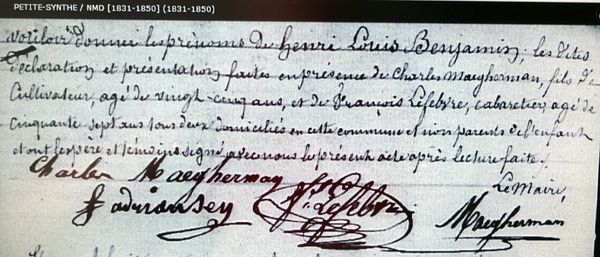 PETITE-SYNTHE / NMD [1831-1850] (1831-1850)
vouloir donner les prénoms de Henri Louis Benjamin, les dites
déclaration et présentation faites en présence de Charles Maegherman, fils de
Cultivateur, agé de vingt-cinq ans, et de François Lefebvre, cabaretier, agé de
cinquante sept ans tous deux domiciliés en cette commune et non parents de l'enfant
et ont les pere et témoins signé avec nous le présent acte après lecture faite.
Charles Maegherman
Le Maire,
Lefebvre
Maegherman